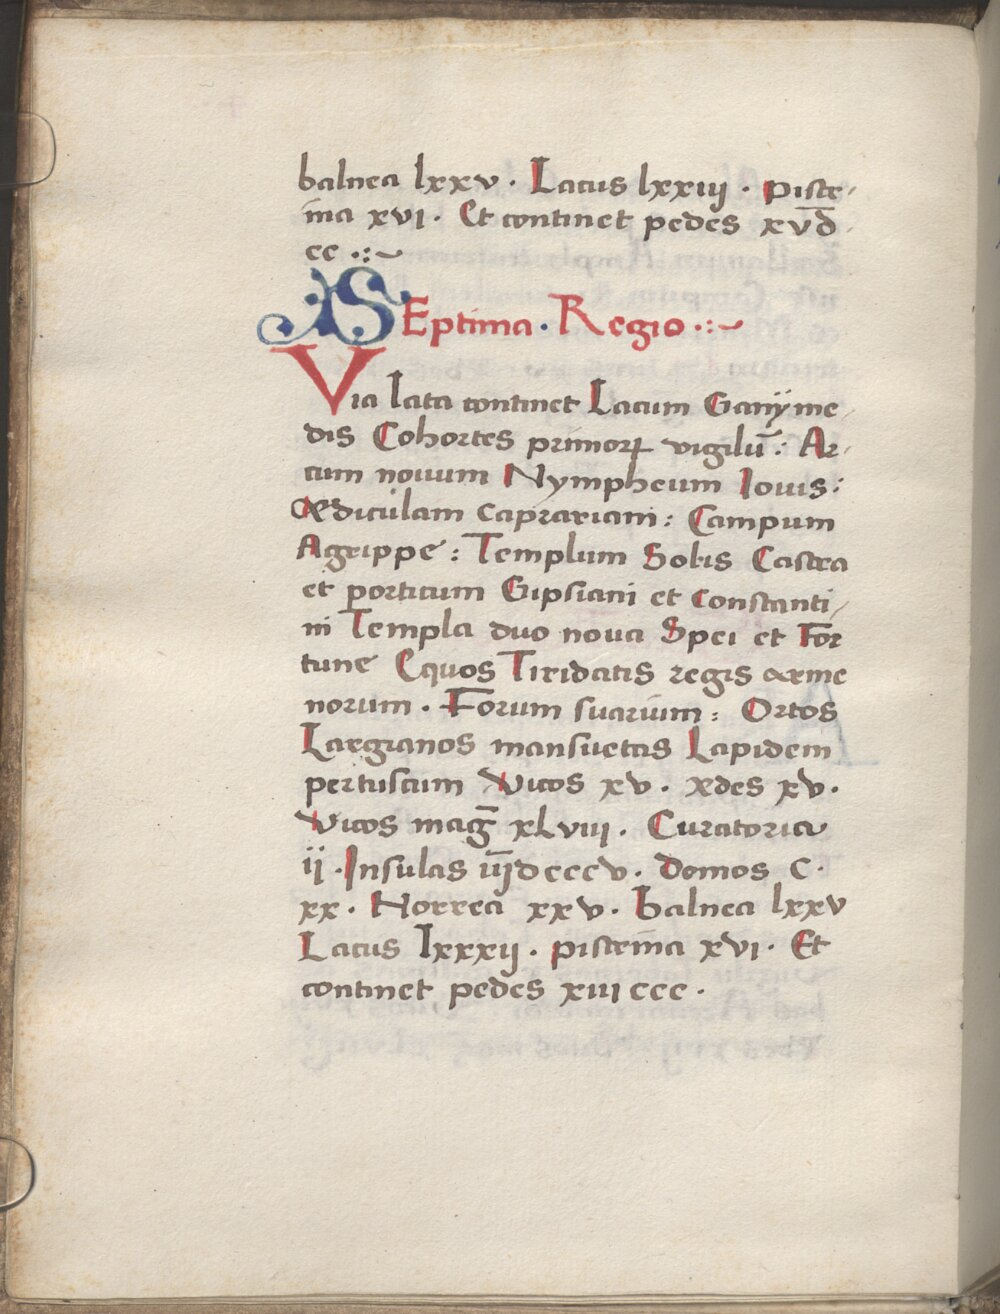 balnea lxxv . Lacus lxxiij . piste-
ina xvi . Et continet pedes xvd̅
cc .:~
SEptima . Regio .:~
Via lata continet Lacum Ganÿme
dis Cohortes primoꝝ vigilū : Ar-
cum nouum Nympheum Iouis :
Ædiculam caprariam : Campum
Agrippe : Templum Solis Castra
et porticum Gipsiani et constanti-
ni Templa duo noua Spei et For
tune Equos Tiridatis regis arme
norum . Forum suarium : Ortos
Largianos mansuetas Lapidem
pertuscum Vicos xv . xdes xv .
Vicos mag̅ xLviii . Curatorica
ii . Insulas iij̅dcccv . Domos C .
xx . Horrea xxv . balnea lxxv
Lacus lxxxij . pisteina xvi . Et
continet pedes xiii ccc .